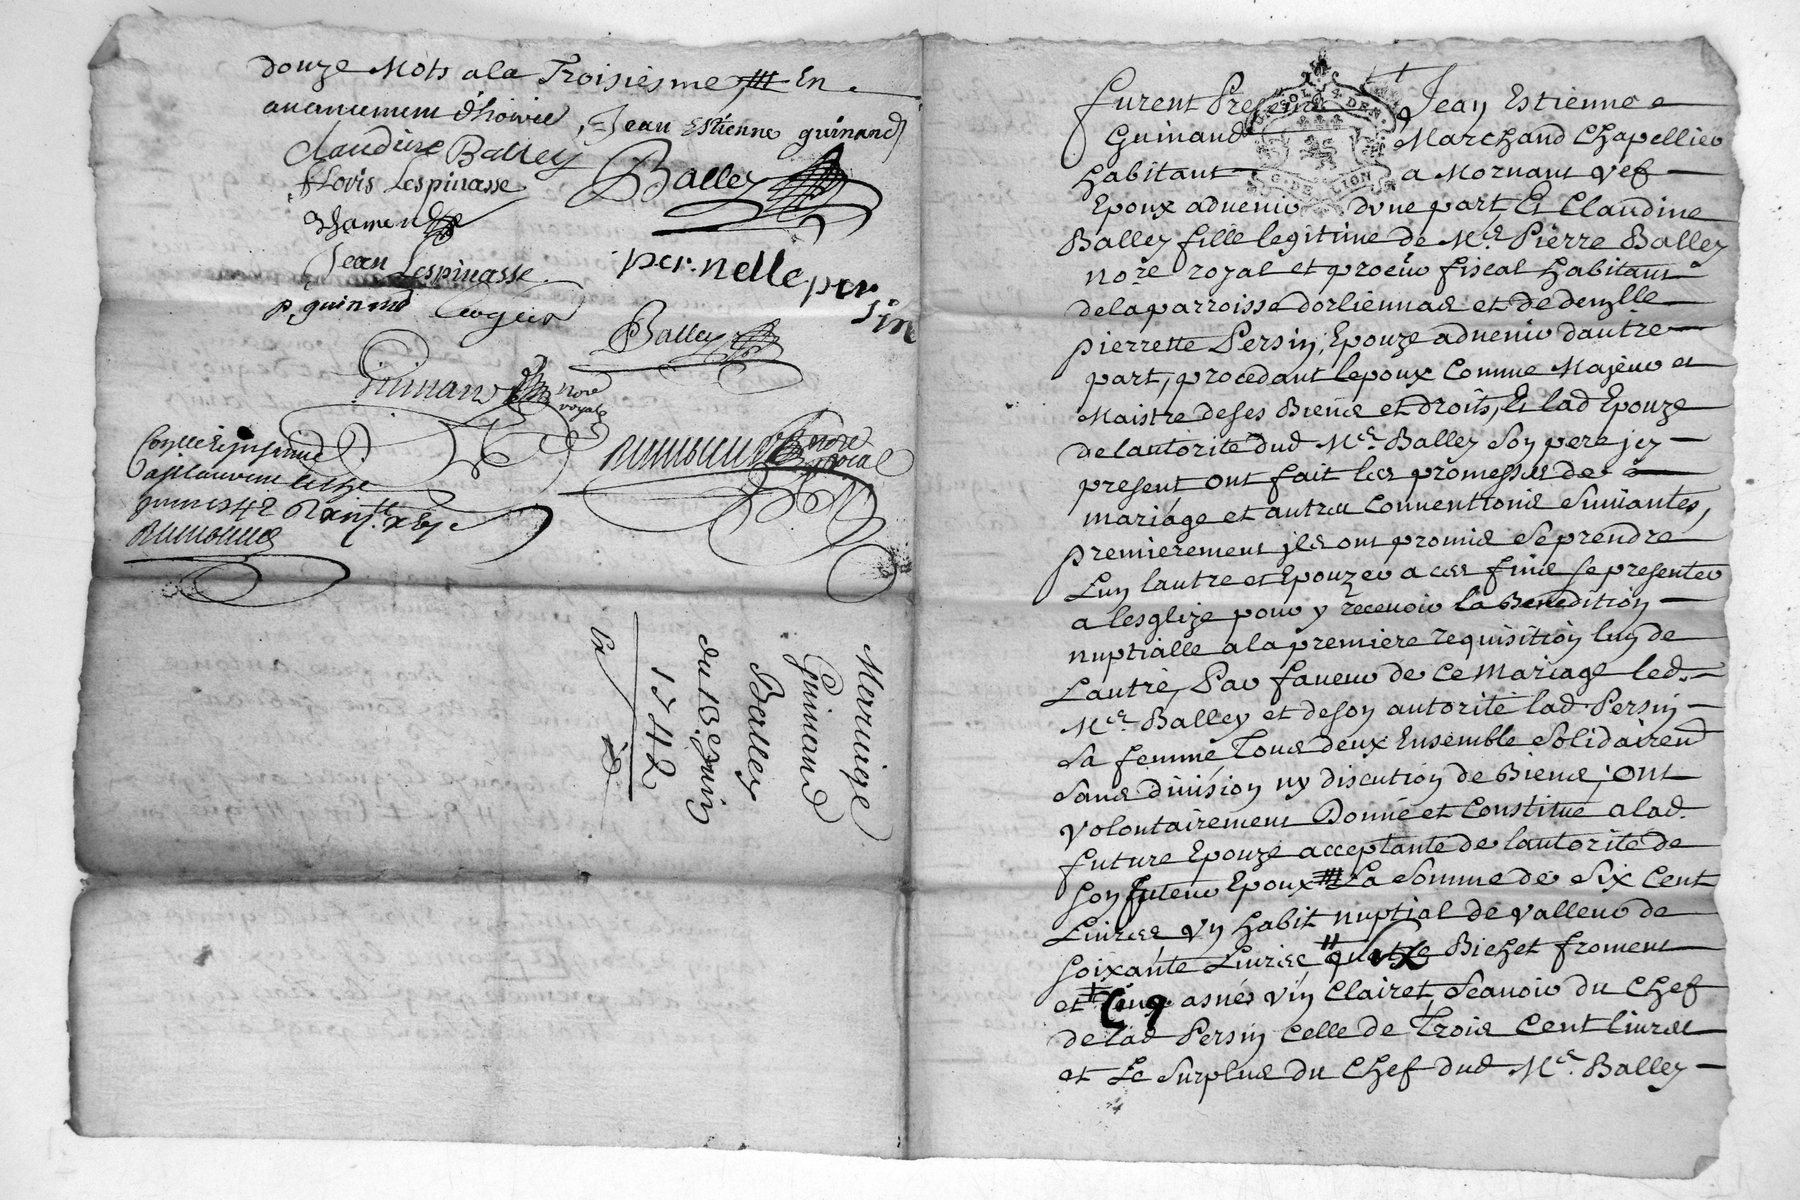 douze Mots ala Troisiesme, En
auancement d'hoirie, Jean Estienne guinand
Claudine Balley
Balley
Lovis Lespinasse
Jean Lespinasse
pernelle per
sin
p. guinand
Balley
Guinand nore
royal
nore
royal
Mariage
Guinand
Balley
du 13 Juin
1742
furent Presents Jean Estienne
Guinand Marchand Chapellier
habitant a Mornant vef
Epoux aduenir dvne part, Et Claudine
Balley fille legitime de Me. Pierre Balley
nore. royal et procur fiscal habitant
delaparroisse dorliennas et de demzlle
pierrette Persin, Epouze aduenir dautre
part, procedant lepoux Comme Majeur et
Maistre deses Biens et droits, Et lad Epouze
delautorité dud Me. Balley son pere jcy
present ont fait les promesses de
mariage et autres Conuentions Suiuantes,
premierement jls ont promis Seprendre
Lun lautre et Epouzer a ces fins se presenter
a lesglize pour y receuoir la Benedition
nuptialle ala premiere requisition lun de
Lautre, Par faueur de Ce Mariage led.
Me. Balley et deson autorité lad Persin
Sa femme, Tous deux Ensemble Solidairent
Sans diuision ny discution de Biens, ont
volontairement Donné et Constitué alad.
future Epouze acceptante de lautorité de
Son futeur Epoux La Somme de Six Cent
Liures vn habit nuptial de valleur de
Soixante Liures Bichet froment
et Cinq asnés vin Clairet, Scauoir du Chef
de lad Persin Celle de Trois Cent liures
et Le Surplus du Chef dud Me. Balley